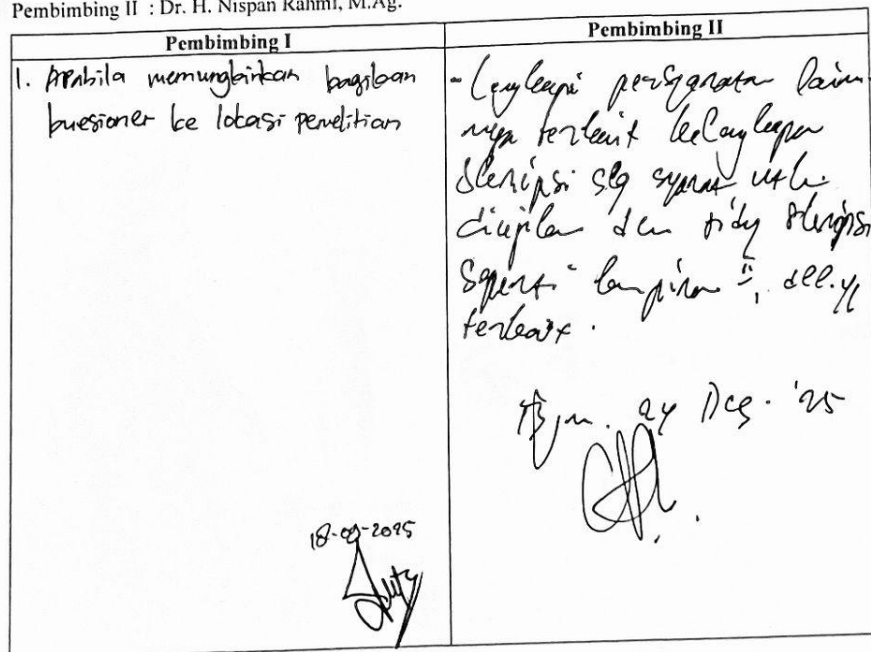 Pembimbing II : Dr. H. Nispan Rahmi, M.Ag.
Pembimbing I
Pembimbing II
1. Apabila memungkinkan bagikan
kuesioner ke lokasi penelitian
18-09-2025
- Lengkapi persyaratan lain
nya terkait kelengkapan
skripsi sbg syarat utk.
diujikan dlm sidg skripsi
seperti lampiran", dll. yg
terkait.
Bjm. 24 Des. '25